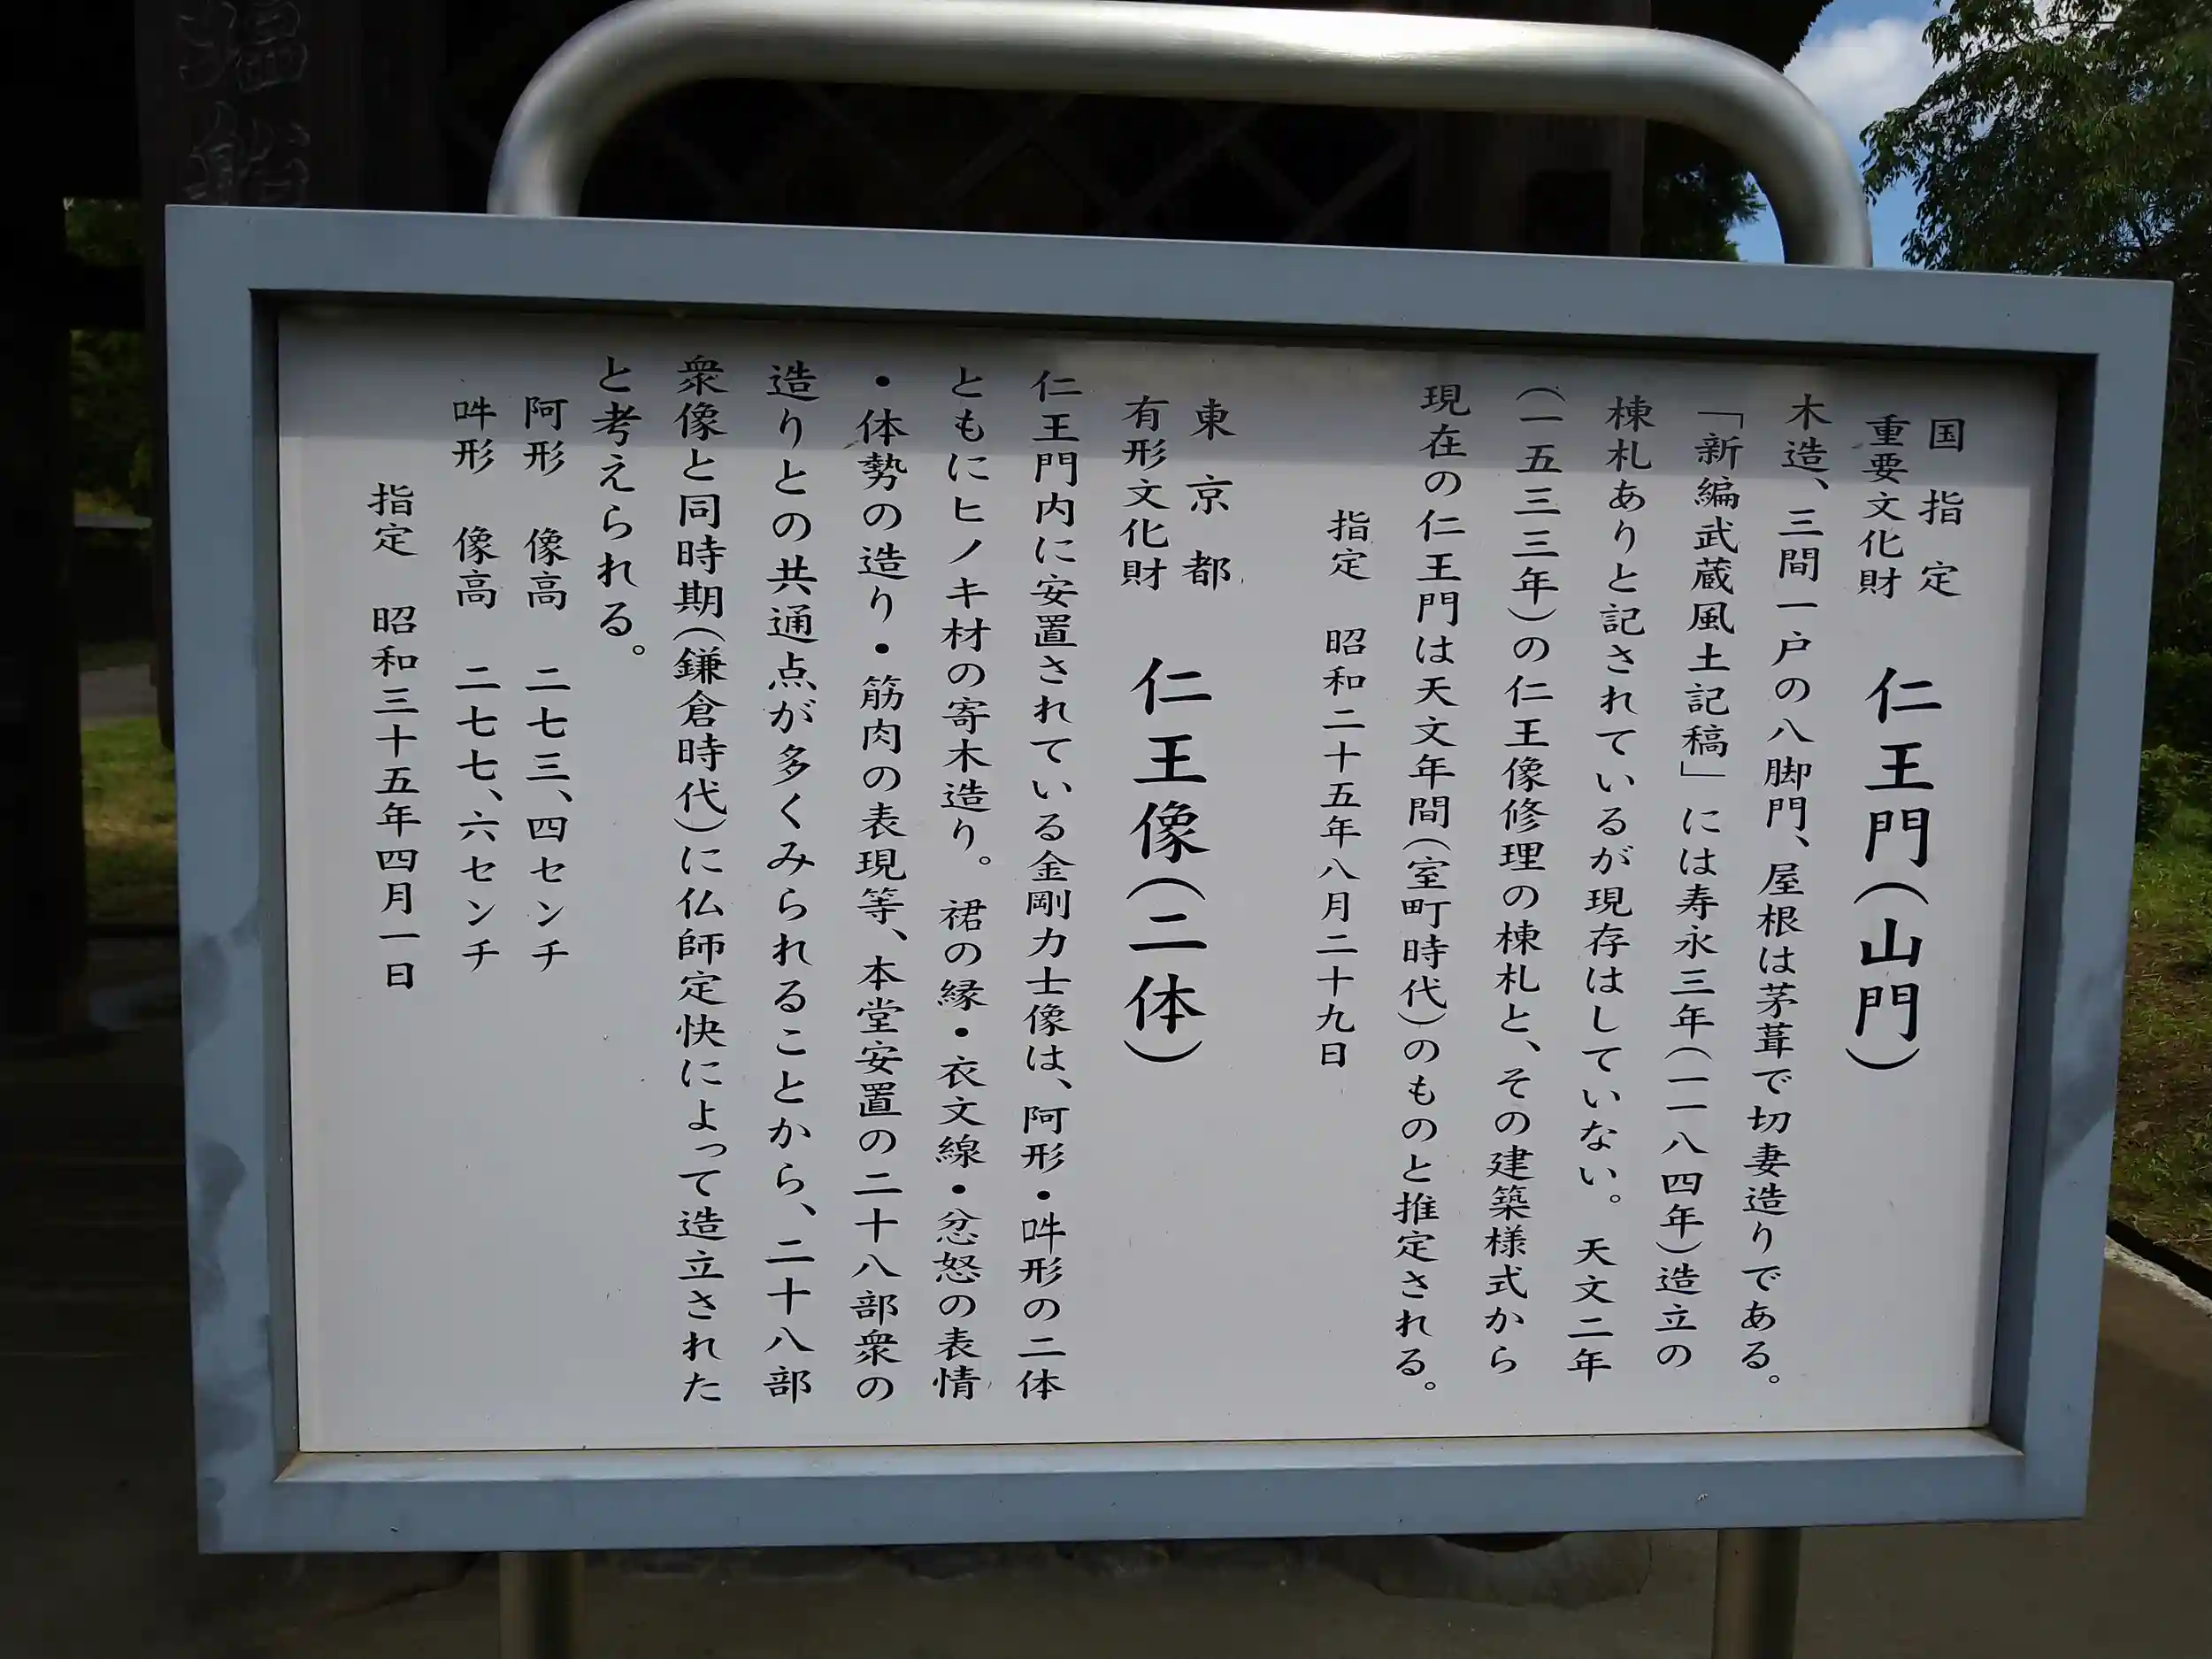 国指定
重要文化財
仁王門(山門)
木造、三間一戸の八脚門、屋根は茅葺で切妻造りである。
「新編武蔵風土記稿」には寿永三年(一一八四年)造立の
棟札ありと記されているが現存はしていない。天文二年
(一五三三年)の仁王像修理の棟札と、その建築様式から
現在の仁王門は天文年間(室町時代)のものと推定される。
指定 昭和二十五年八月二十九日
東京都
有形文化財
仁王像(二体)
仁王門内に安置されている金剛力士像は、阿形・吽形の二体
ともにヒノキ材の寄木造り。裙の縁・衣文線・忿怒の表情
・体勢の造り・筋肉の表現等、本堂安置の二十八部衆の
造りとの共通点が多くみられることから、二十八部
衆像と同時期(鎌倉時代)に仏師定快によって造立された
と考えられる。
阿形 像高 二七三、四センチ
吽形 像高 二七七、六センチ
指定 昭和三十五年四月一日
塩船